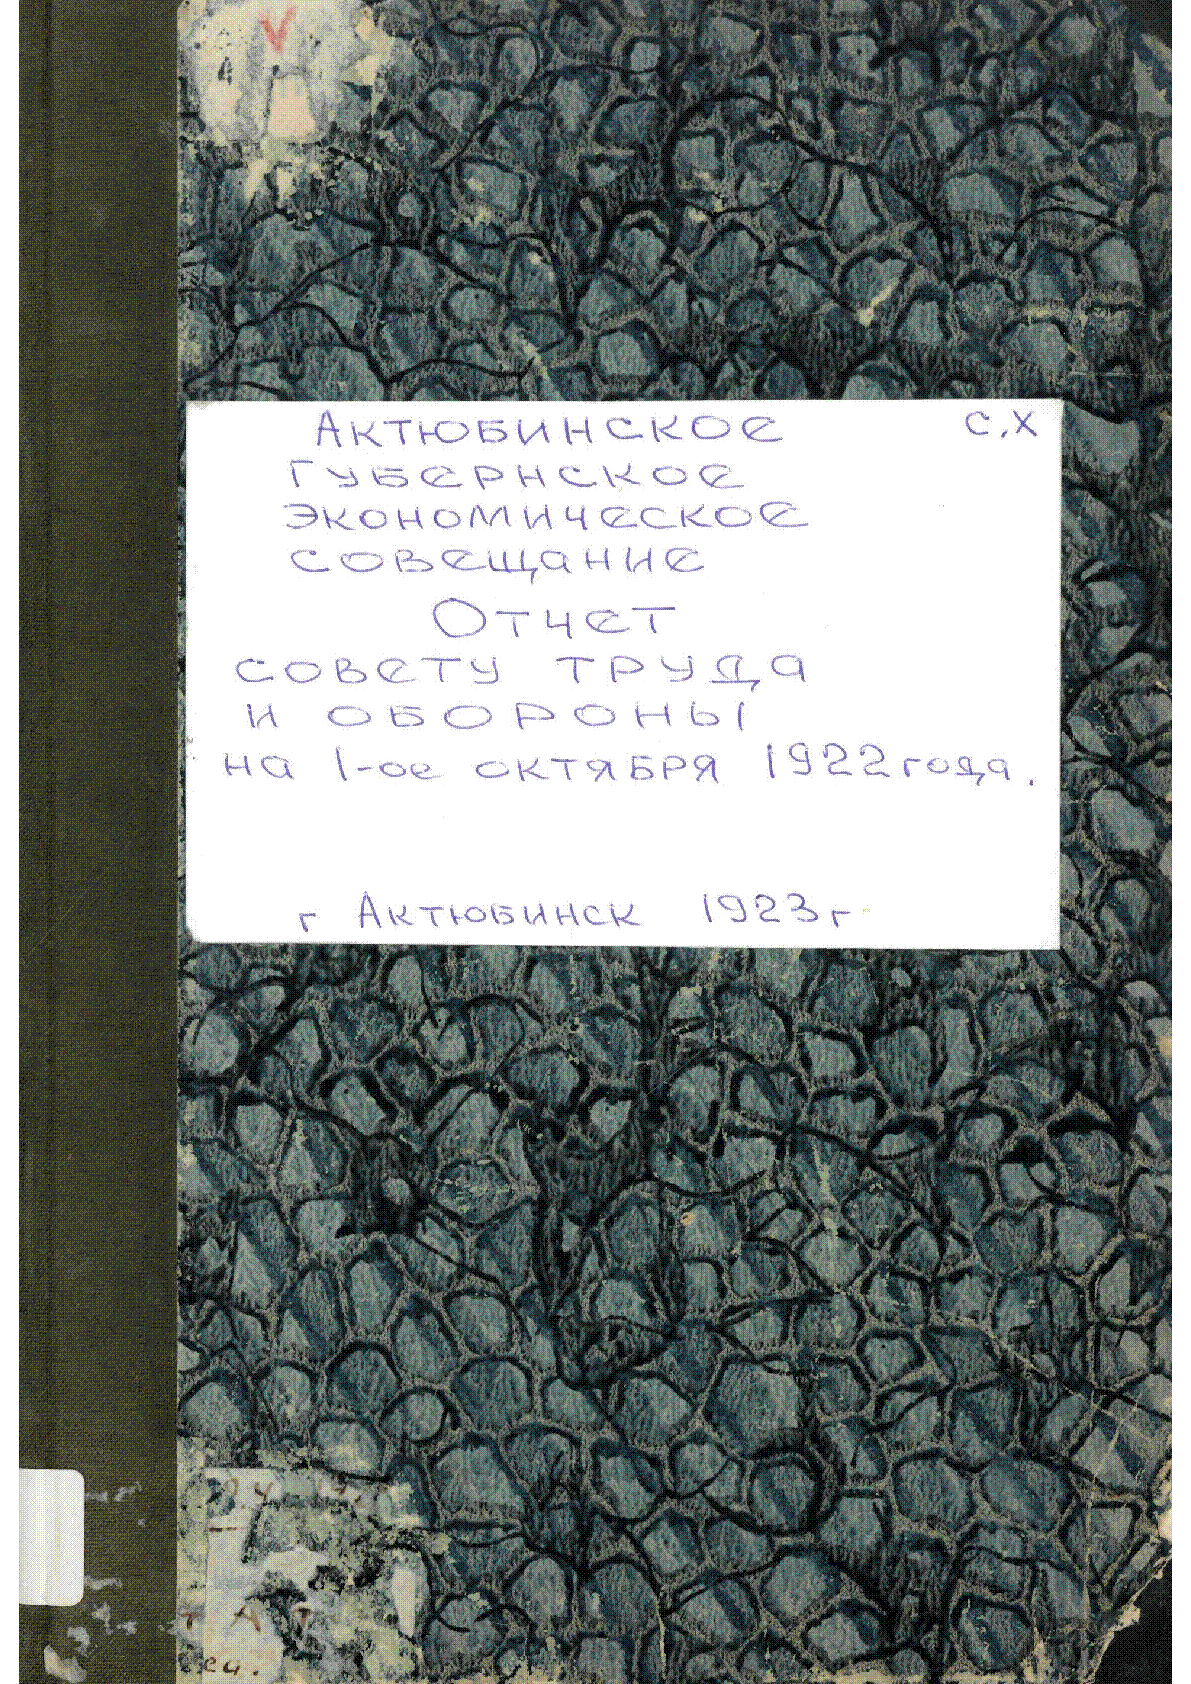 Актюбинское с.х
Губернское
экономическое
совещание
Отчет
совету труда
и обороны
на 1-ое октября 1922 года.
г Актюбинск 1923 г